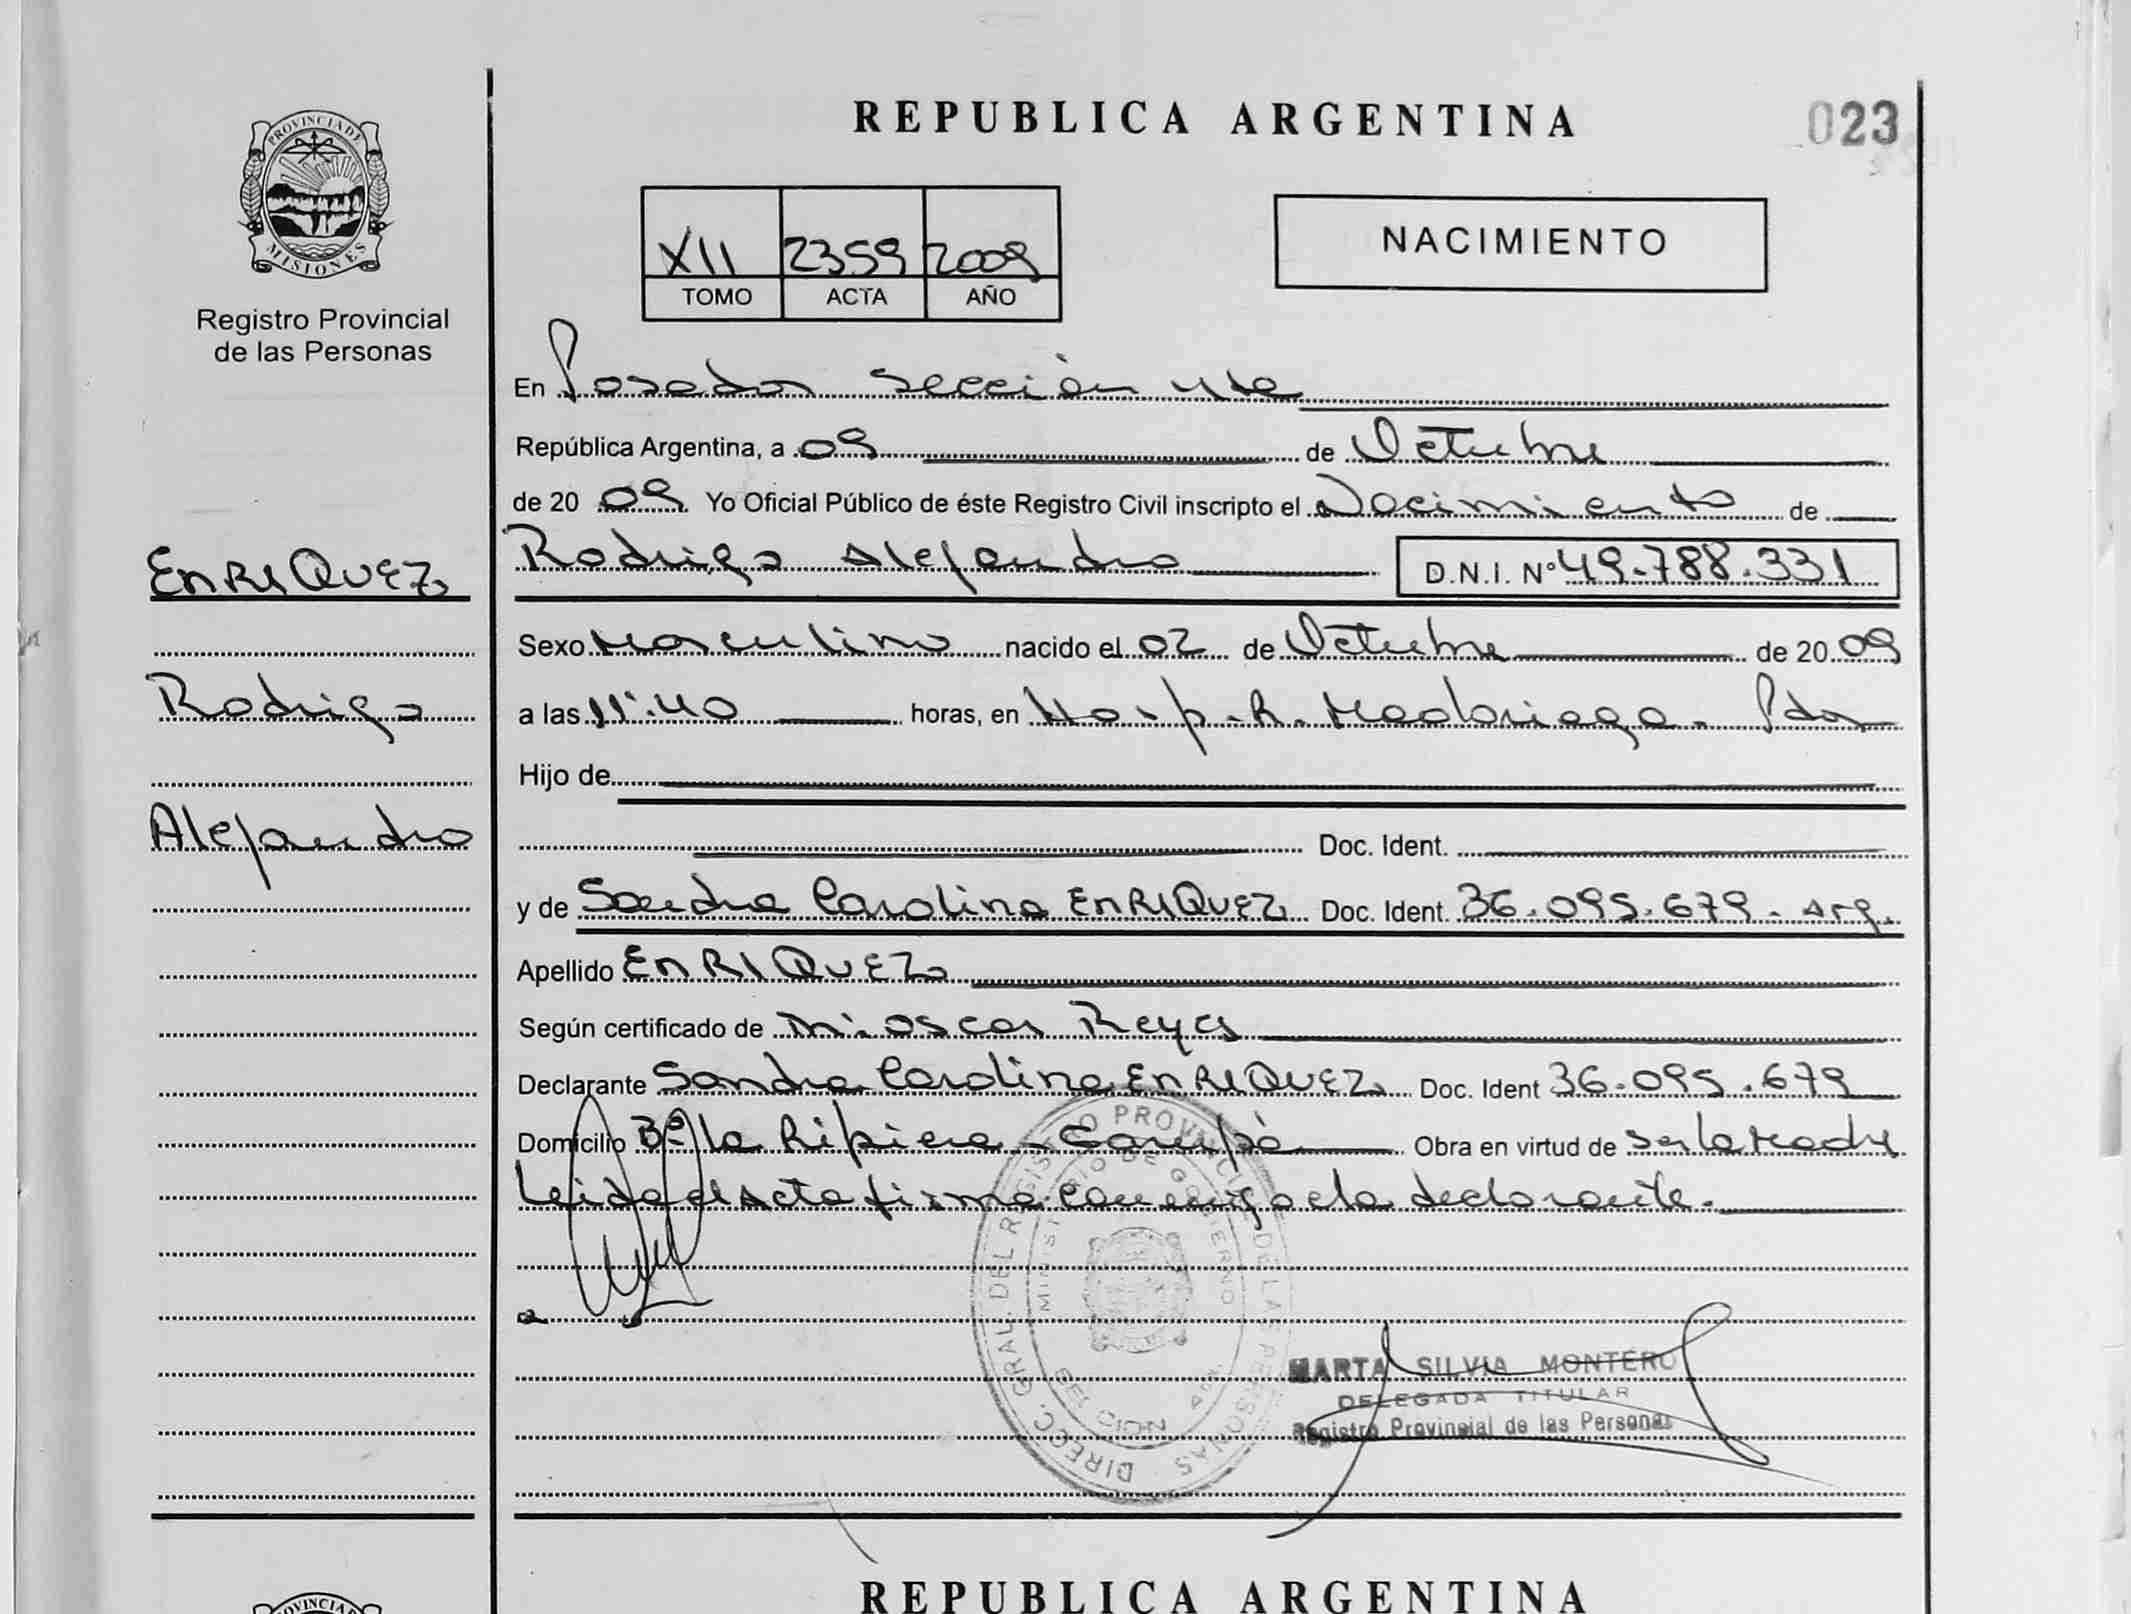 REPUBLICA ARGENTINA
023
PROVINCIA DE
MISIONES
Registro Provincial
de las Personas
XII 2359 2009
TOMO ACTA AÑO
NACIMIENTO
En Posadas Sección 4ta
República Argentina, a 09 de Octubre
de 20 09 Yo Oficial Público de éste Registro Civil inscripto el Nacimiento de
Rodrigo Alejandro D.N.I. Nº 49.788.331
ENRIQUEZ
Sexo Masculino nacido el 02 de Octubre de 20 09
Rodrigo
a las 11:40 horas, en Hosp. R. Madariaga. Pdas
Hijo de
Alejandro
Doc. Ident.
y de Sandra Carolina ENRIQUEZ Doc. Ident. 36.095.679 - arg.
Apellido ENRIQUEZ
Según certificado de Oscar Reyes
Declarante Sandra Carolina ENRIQUEZ Doc. Ident 36.095.679
Domicilio Bº la Ribiera - Garupá Obra en virtud de ser la Madre
Leida el Acta firma conmigo la declarante.
DIRECC. GRAL. DEL REGISTRO PROVINCIAL DE LAS PERSONAS
MINISTERIO DE GOBIERNO
MARTA SILVIA MONTERO
DELEGADA TITULAR
Registro Provincial de las Personas
REPUBLICA ARGENTINA